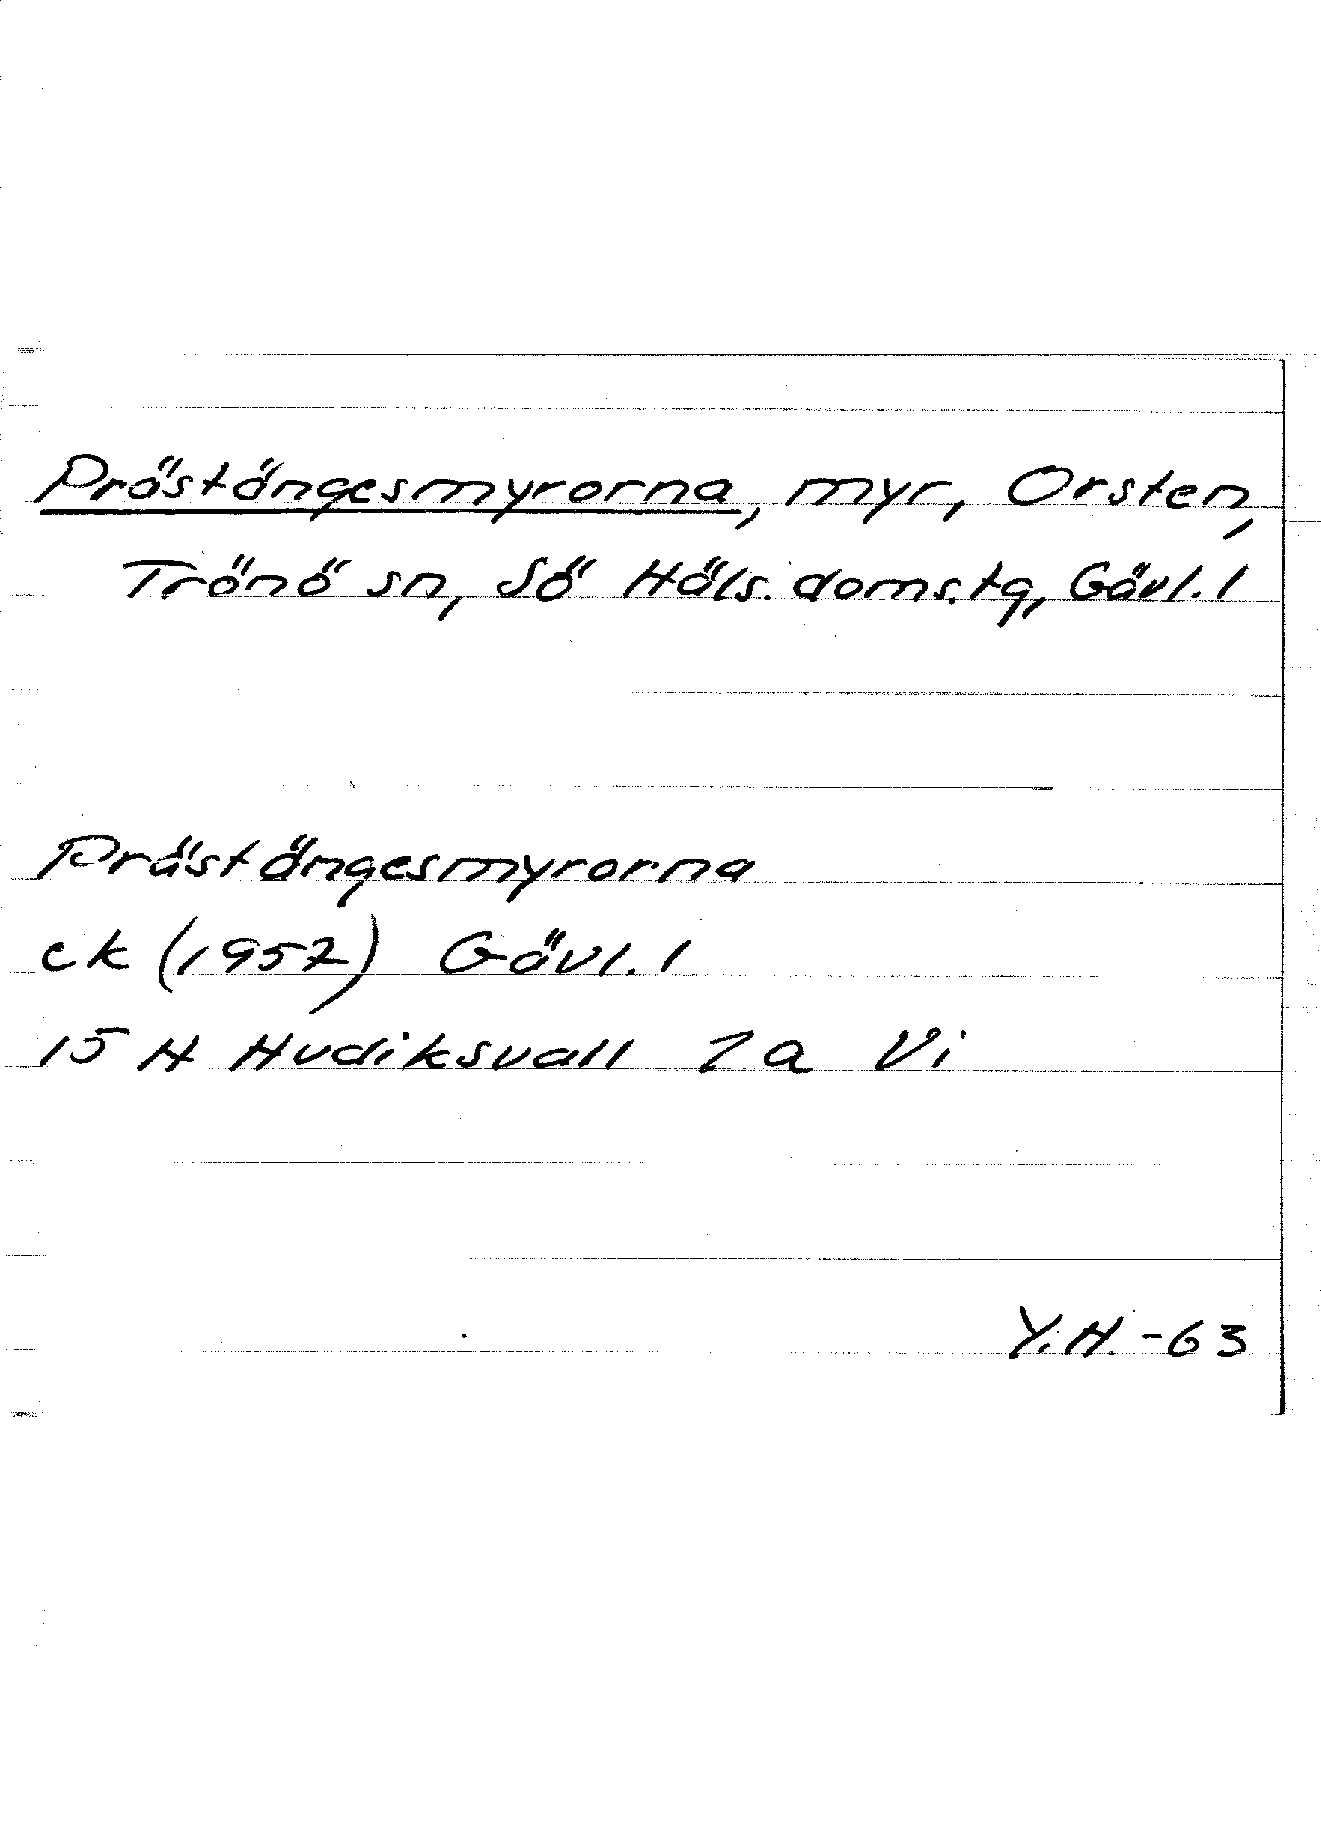 Prästängesmyrorna, myr, Orsten,
Trönö sn, Sö Häls. doms.tg, Gävl. l
Prästängesmyrorna
ek (1957) Gävl. l
15 H Hudiksvall 2 a Vi
Y.H. -63